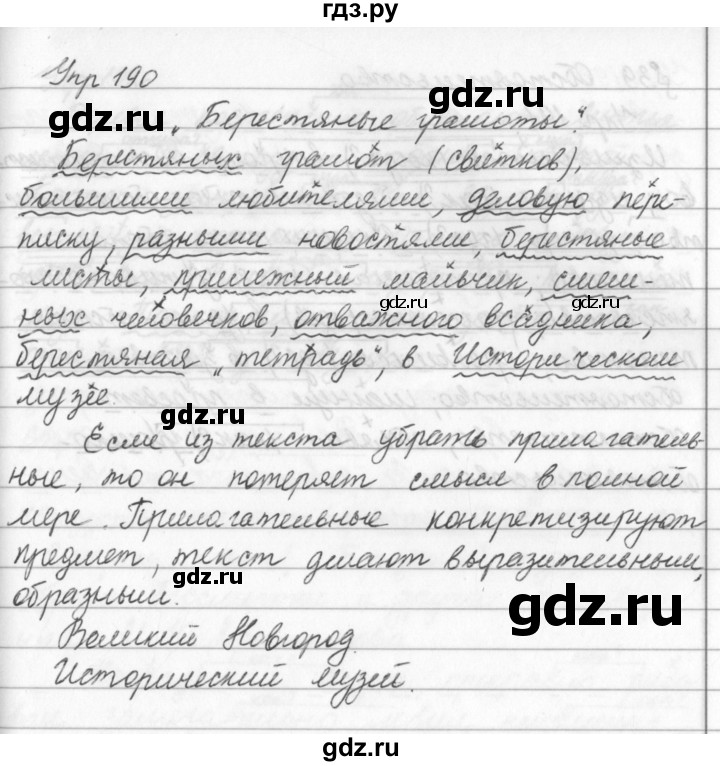 гдз.ру
Упр 190
gdz.ru
gdz.ru
„Берестяные грамоты“.
Берестяных грамот (свитков),
большими любителями, деловую пере-
писку, разными новостями, берестяные
листы, прилежный мальчик, смеш-
gdz.ru
gdz.ru
ных человечков, отважного всадника,
берестяная „тетрадь“, в Историческом
музее.
gdz.ru
Если из текста убрать прилагатель-
ные, то он потеряет смысл в полной
мере. Прилагательные конкретизируют
предмет, текст делают выразительным,
gdz.ru
образным.
gdz.ru
Великий Новгород.
Исторический музей.
gdz.ru